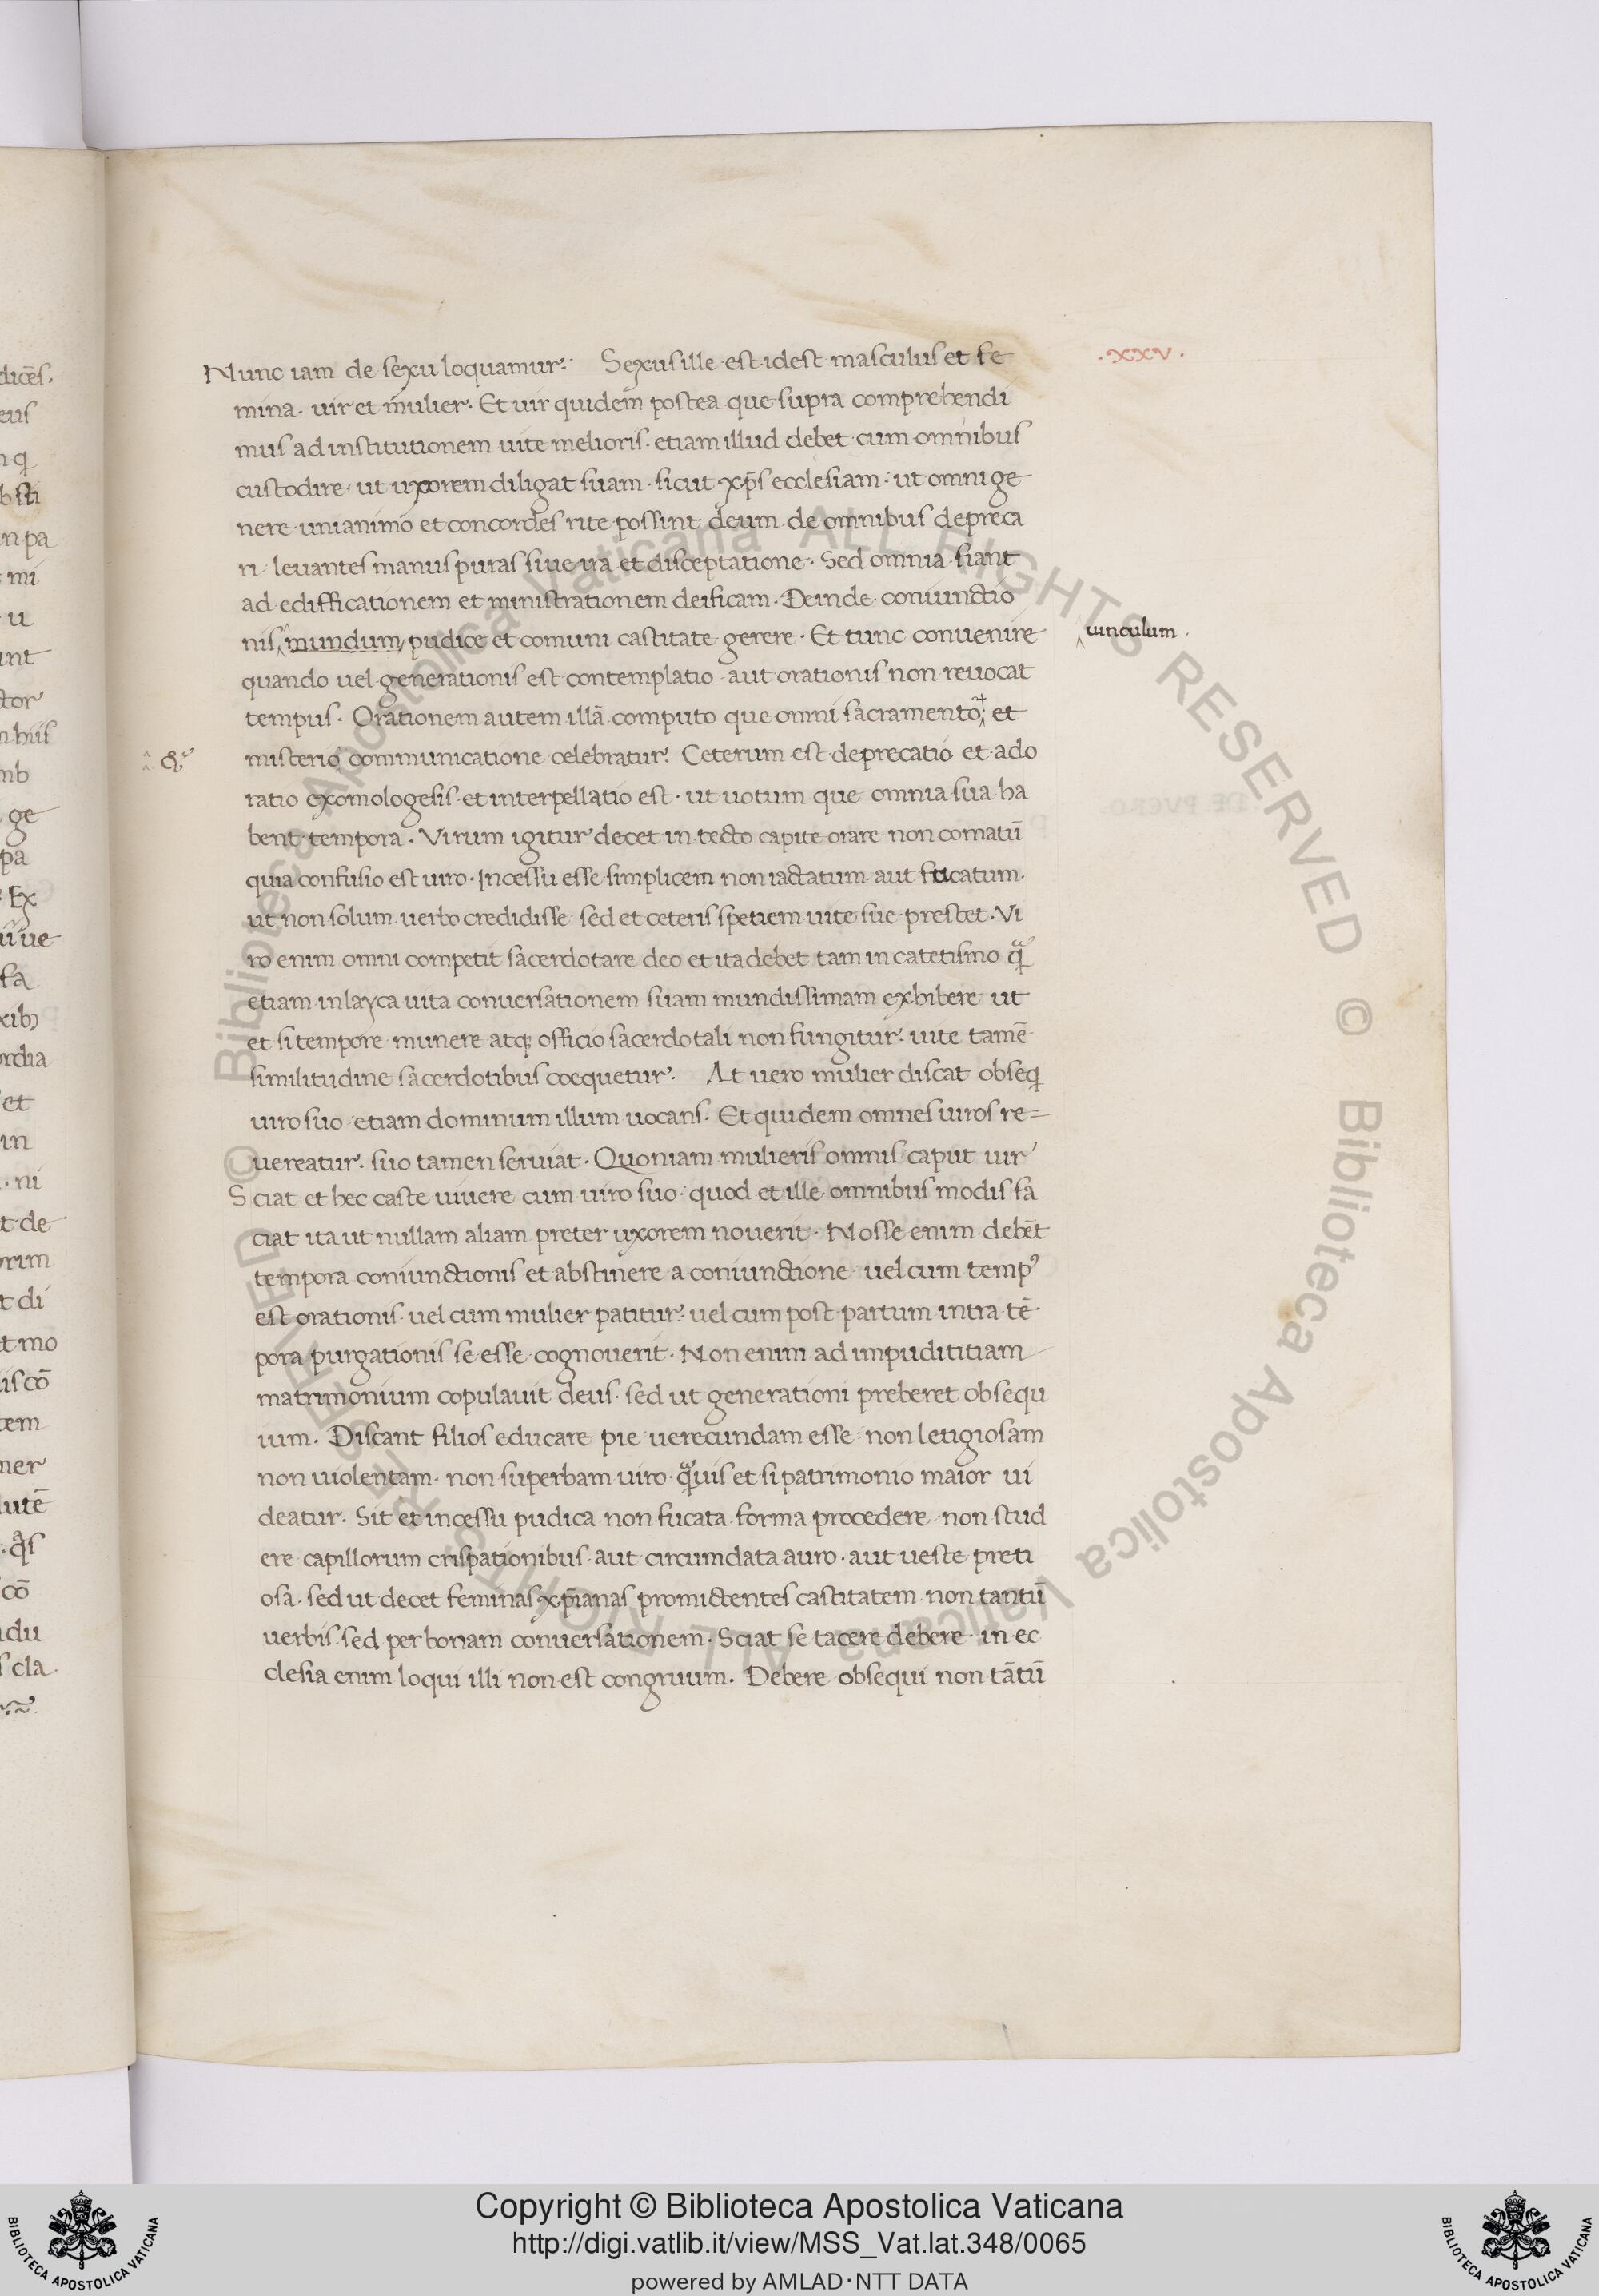 Nunc iam de sexu loquamur. Sexus ille est idest masculus et fe
.XXV.
mina. uir et mulier. Et uir quidem postea que supra comprehendi
mus ad institutionem uite melioris. etiam illud debet cum omnibus
custodire. ut uxorem diligat suam. sicut xp̄s ecclesiam. ut omni ge
nere unianimo et concordes rite possint deum de omnibus depreca
ri levantes manus puras siue ira et disceptatione. Sed omnia fiant
ad edifficationem et ministrationem deificam. Deinde coniunctio
nis mundum pudice et comuni castitate gerere. Et tunc conuenire
uinculum.
quando uel generationis est contemplatio aut orationis non reuocat
tempus. Orationem autem illā computo que omni sacramento et
&
misterio communicatione celebratur. Ceterum est deprecatio et ado
ratio exomologesis et interpellatio est. ut uotum que omnia sua ha
bent tempora. Virum igitur decet in tecto capite orare non comatū
quia confusio est uiro. Incessu esse simplicem non iactatum aut fucatum.
ut non solum uerbo credidisse sed et ceteris spetiem uite sue prestet. Vi
ro enim omni competit sacerdotare deo et ita debet tam in catetismo q̃
etiam in layca uita conuersationem suam mundissimam exhibere ut
et si tempore munere atq; officio sacerdotali non fungitur. uite tamē
similitudine sacerdotibus coequetur. At uero mulier discat obseq
uiro suo etiam dominum illum uocans. Et quidem omnes uiros re=
uereatur. suo tamen seruiat. Quoniam mulieris omnis caput uir
Sciat et hec caste uiuere cum uiro suo. quod et ille omnibus modis fa
ciat ita ut nullam aliam preter uxorem nouerit. Nosse enim debēt
tempora coniunctionis et abstinere a coniunctione uel cum temp9
est orationis. uel cum mulier patitur. uel cum post partum intra tē
pora purgationis se esse cognouerit. Non enim ad impudititiam
matrimonium copulauit deus. sed ut generationi preberet obsequ
ium. Discant filios educare pie uerecundam esse non letigiosam
non uiolentam. non superbam uiro. q̃uis et si patrimonio maior ui
deatur. Sit et incessu pudica non fucata forma procedere non stud
ere capillorum crispationibus. aut circumdata auro. aut ueste preti
osa. sed ut decet feminas xp̄ianas promictentes castitatem non tantū
uerbis. sed per bonam conuersationem. Sciat se tacere debere in ec
clesia enim loqui illi non est congruum. Debere obsequi non tātū
© Biblioteca Apostolica Vaticana ALL RIGHTS RESERVED © Biblioteca Apostolica Vaticana ALL RIGHTS RESERVED
Copyright © Biblioteca Apostolica Vaticana
http://digi.vatlib.it/view/MSS_Vat.lat.348/0065
powered by AMLAD·NTT DATA
BIBLIOTECA APOSTOLICA VATICANA
BIBLIOTECA APOSTOLICA VATICANA